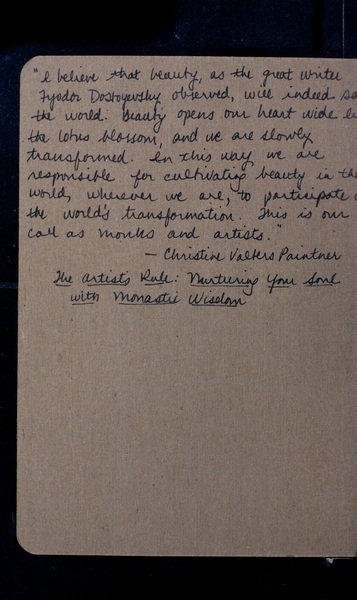 "I believe that beauty, as the great writer
Fyodor Dostoyevsky observed, will indeed
the world. Beauty opens our heart wide
the lotus blossom, and we are slowly
transformed. In this way we are
responsible for cultivating beauty in
world, wherever we are, to participate
the world's transformation. This is our
call as monks and artists."
— Christine Valters Paintner
The Artist's Rule: Nurturing Your Soul
with Monastic Wisdom